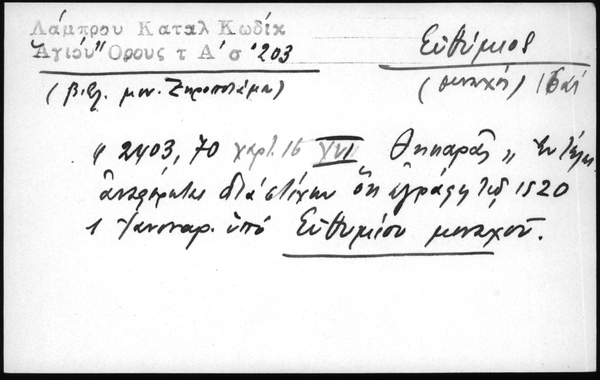 Λάμπρου Καταλ Κωδίκ
Ἁγίου" Ορους τ Α' σ '203
Εὐθύμιος
(βιβλ. μον. Ξηροποτάμου)
(μοναχός) 16 αἰ
" 2403, 70 χαρτ. 16 XVI Θηκαρᾶς " Ἐν τέλει
ἀναφέρεται διὰ στίχων ὅτι ἐγράφη τῷ 1520
1 Ἰανουαρ. ὑπὸ Εὐθυμίου μοναχοῦ.